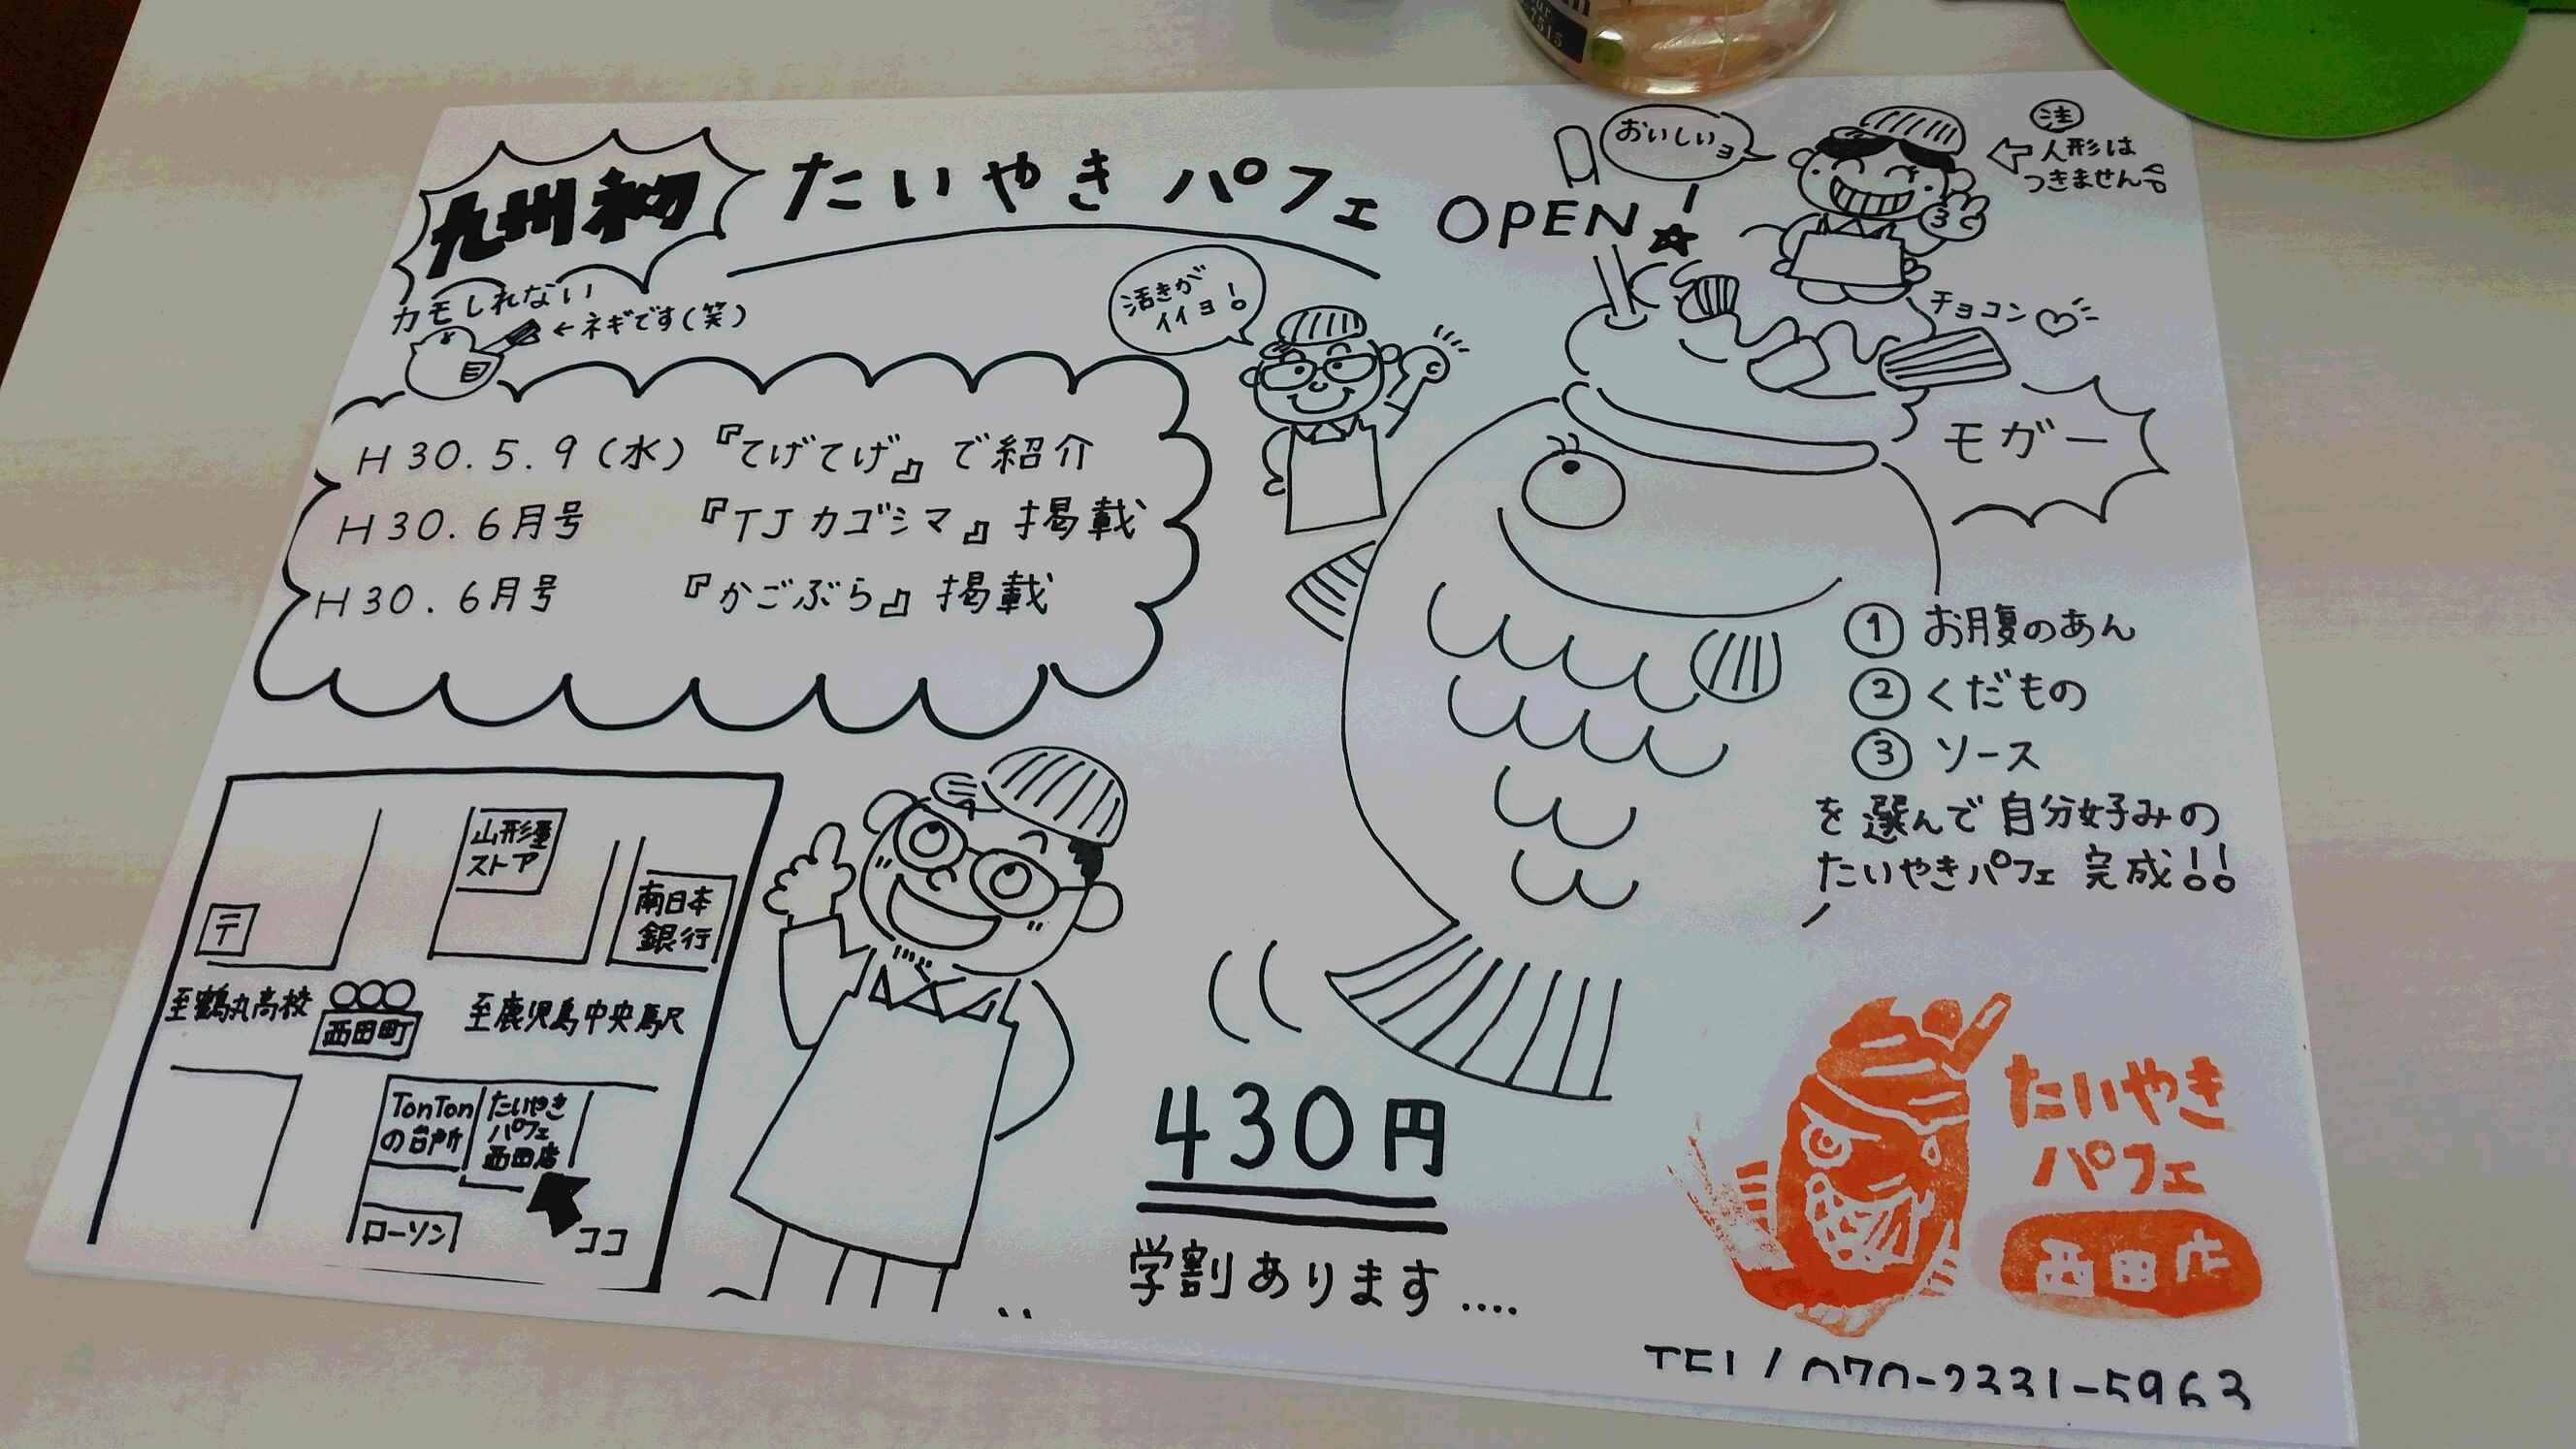 九州初
たいやき パフェ
OPEN☆
おいしいョ
注
人形は
つきません
カモしれない
←ネギです(笑)
活きが
イイョ!
チョコン♡
モガー
H30.5.9(水)『てげてげ』で紹介
H30.6月号 『TJカゴシマ』掲載
H30.6月号 『かごぶら』掲載
① お腹のあん
② くだもの
③ ソース
を選んで自分好みの
たいやきパフェ 完成!!
山形屋
ストア
南日本
銀行
〒
至鶴丸高校
西田町
至鹿児島中央駅
TonTon
の台所
たいやき
パフェ
西田店
ローソン
ココ
430円
学割あります....
たいやき
パフェ
西田店
TEL/070-2331-5963